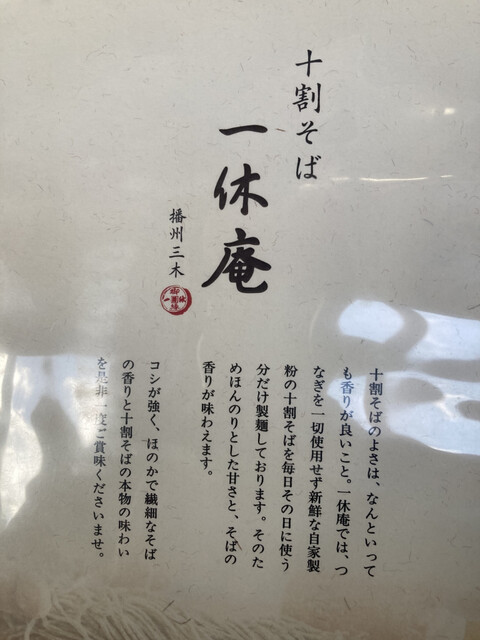 十割そば
一休庵
播州三木
十割そばのよさは、なんといって
も香りが良いこと。一休庵では、つ
なぎを一切使用せず新鮮な自家製
粉の十割そばを毎日その日に使う
分だけ製麺しております。そのた
めほんのりとした甘さと、そばの
香りが味わえます。
コシが強く、ほのかで繊細なそば
の香りと十割そばの本物の味わい
を是非一度ご賞味くださいませ。